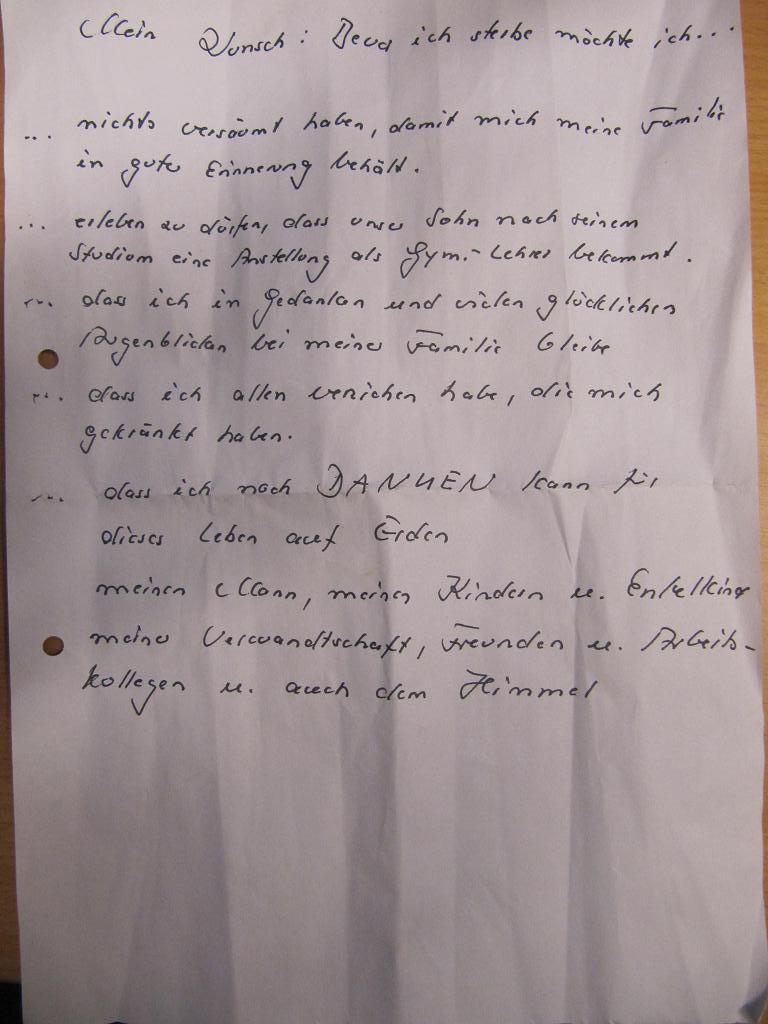 Mein Wunsch: Bevor ich sterbe möchte ich...
... nichts versäumt haben, damit mich meine Familie
in guter Erinnerung behält.
... erleben zu dürfen, dass unser Sohn nach seinem
Studium eine Anstellung als Gym.-Lehrer bekommt.
... dass ich in Gedanken und vielen glücklichen
Augenblicken bei meiner Familie bleibe
... dass ich allen verziehen habe, die mich
gekränkt haben.
... dass ich noch DANKEN kann für
dieses Leben auf Erden
meinen Mann, meinen Kindern u. Enkelkinder
meiner Verwandtschaft, Freunden u. Arbeits-
kollegen u. auch dem Himmel